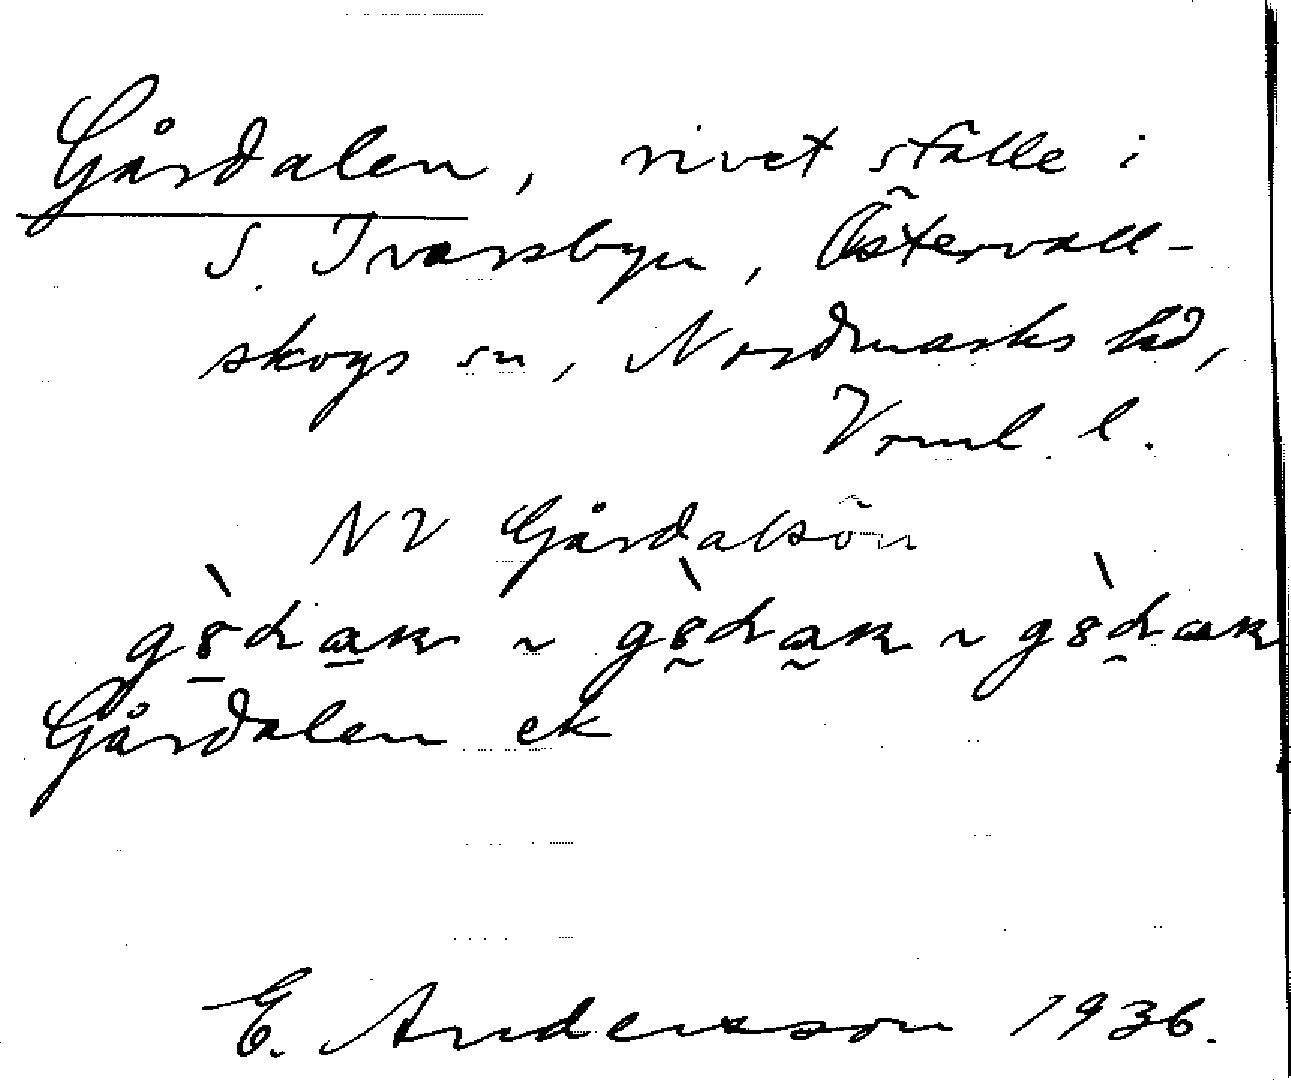 Gårdalen, rivet ställe i
S. Ivarsbyn, Östervall-
skogs sn, Nordmarks hd,
Vrml. l.
NV Gårdalsön
Gårdalen ek
E. Andersson 1936.